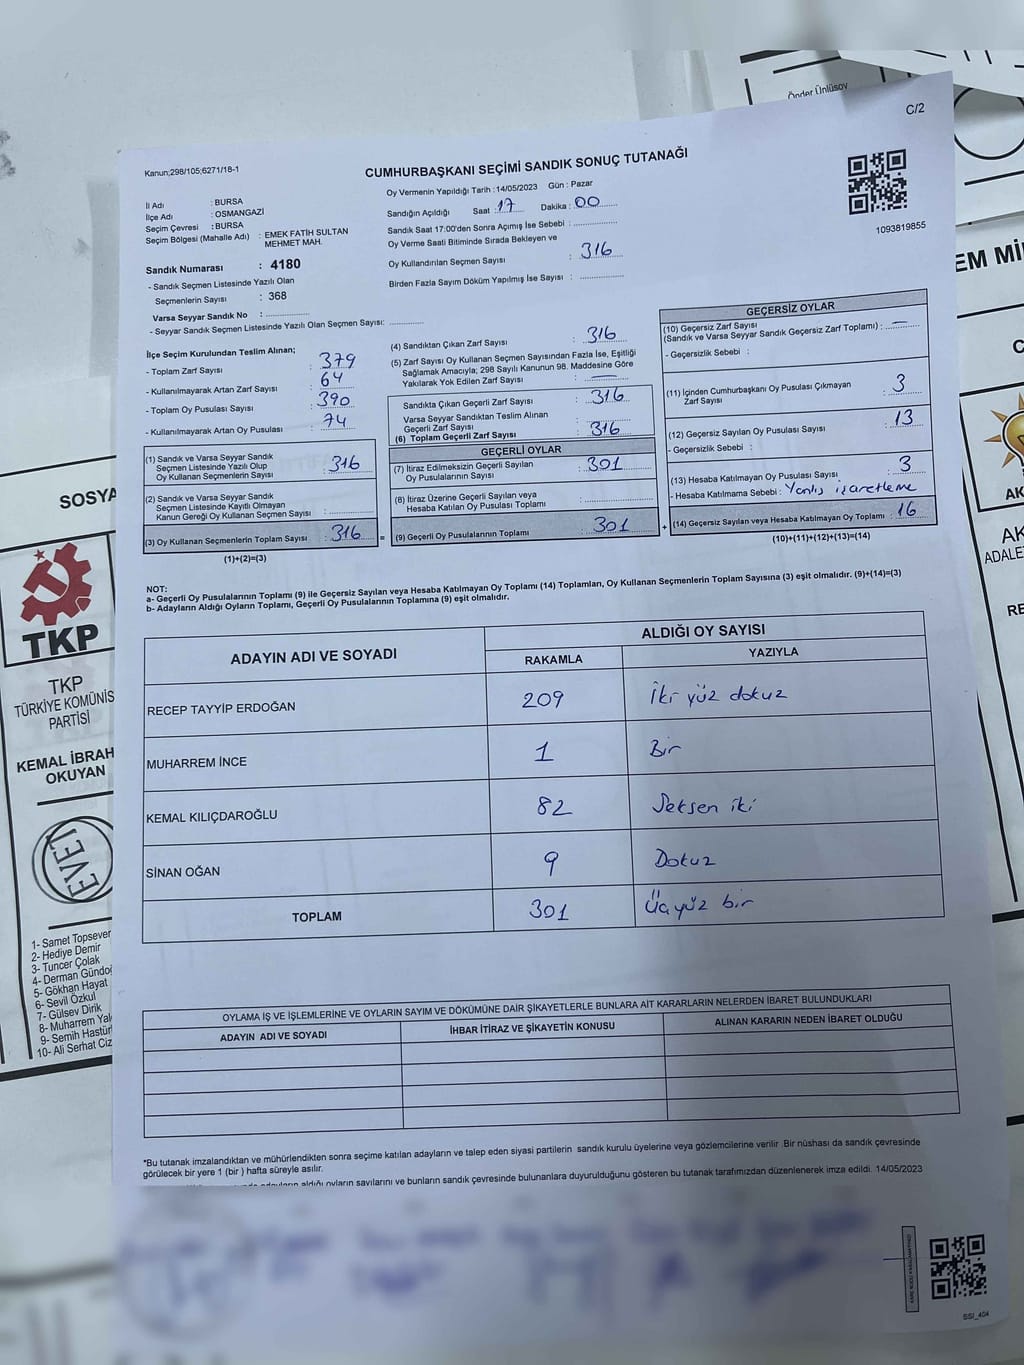 Önder Ünlüsoy
C/2
Kanun;298/105;6271/18-1
CUMHURBAŞKANI SEÇİMİ SANDIK SONUÇ TUTANAĞI
İl Adı : BURSA
İlçe Adı : OSMANGAZİ
Seçim Çevresi : BURSA
Seçim Bölgesi (Mahalle Adı) : EMEK FATİH SULTAN
MEHMET MAH.
Sandık Numarası : 4180
- Sandık Seçmen Listesinde Yazılı Olan
Seçmenlerin Sayısı : 368
Varsa Seyyar Sandık No :
- Seyyar Sandık Seçmen Listesinde Yazılı Olan Seçmen Sayısı:
Oy Vermenin Yapıldığı Tarih : 14/05/2023 Gün : Pazar
Sandığın Açıldığı Saat : 17 Dakika : 00
Sandık Saat 17:00'den Sonra Açımış İse Sebebi :
Oy Verme Saati Bitiminde Sırada Bekleyen ve
Oy Kullandırılan Seçmen Sayısı : 316
Birden Fazla Sayım Döküm Yapılmış İse Sayısı :
1093819855
İlçe Seçim Kurulundan Teslim Alınan;
- Toplam Zarf Sayısı : 379
- Kullanılmayarak Artan Zarf Sayısı : 64
- Toplam Oy Pusulası Sayısı : 390
- Kullanılmayarak Artan Oy Pusulası : 74
(1) Sandık ve Varsa Seyyar Sandık
Seçmen Listesinde Yazılı Olup
Oy Kullanan Seçmenlerin Sayısı : 316
(2) Sandık ve Varsa Seyyar Sandık
Seçmen Listesinde Kayıtlı Olmayan
Kanun Gereği Oy Kullanan Seçmen Sayısı :
(3) Oy Kullanan Seçmenlerin Toplam Sayısı : 316
(1)+(2)=(3)
(4) Sandıktan Çıkan Zarf Sayısı : 316
(5) Zarf Sayısı Oy Kullanan Seçmen Sayısından Fazla İse, Eşitliği
Sağlamak Amacıyla; 298 Sayılı Kanunun 98. Maddesine Göre
Yakılarak Yok Edilen Zarf Sayısı : —
Sandıkta Çıkan Geçerli Zarf Sayısı : 316
Varsa Seyyar Sandıktan Teslim Alınan
Geçerli Zarf Sayısı :
(6) Toplam Geçerli Zarf Sayısı : 316
GEÇERLİ OYLAR
(7) İtiraz Edilmeksizin Geçerli Sayılan
Oy Pusulalarının Sayısı : 301
(8) İtiraz Üzerine Geçerli Sayılan veya
Hesaba Katılan Oy Pusulası Toplamı :
= (9) Geçerli Oy Pusulalarının Toplamı : 301
GEÇERSİZ OYLAR
(10) Geçersiz Zarf Sayısı
(Sandık ve Varsa Seyyar Sandık Geçersiz Zarf Toplamı) : —
- Geçersizlik Sebebi :
(11) İçinden Cumhurbaşkanı Oy Pusulası Çıkmayan
Zarf Sayısı : 3
(12) Geçersiz Sayılan Oy Pusulası Sayısı : 13
- Geçersizlik Sebebi :
(13) Hesaba Katılmayan Oy Pusulası Sayısı : 3
- Hesaba Katılmama Sebebi : Yanlış işaretleme
+ (14) Geçersiz Sayılan veya Hesaba Katılmayan Oy Toplamı : 16
(10)+(11)+(12)+(13)=(14)
NOT:
a- Geçerli Oy Pusulalarının Toplamı (9) ile Geçersiz Sayılan veya Hesaba Katılmayan Oy Toplamı (14) Toplamları, Oy Kullanan Seçmenlerin Toplam Sayısına (3) eşit olmalıdır. (9)+(14)=(3)
b- Adayların Aldığı Oyların Toplamı, Geçerli Oy Pusulalarının Toplamına (9) eşit olmalıdır.
ADAYIN ADI VE SOYADI
ALDIĞI OY SAYISI
RAKAMLA YAZIYLA
RECEP TAYYİP ERDOĞAN 209 İki yüz dokuz
MUHARREM İNCE 1 Bir
KEMAL KILIÇDAROĞLU 82 Seksen iki
SİNAN OĞAN 9 Dokuz
TOPLAM 301 Üçyüz bir
OYLAMA İŞ VE İŞLEMLERİNE VE OYLARIN SAYIM VE DÖKÜMÜNE DAİR ŞİKAYETLERLE BUNLARA AİT KARARLARIN NELERDEN İBARET BULUNDUKLARI
ADAYIN ADI VE SOYADI İHBAR İTİRAZ VE ŞİKAYETİN KONUSU ALINAN KARARIN NEDEN İBARET OLDUĞU
*Bu tutanak imzalandıktan ve mühürlendikten sonra seçime katılan adayların ve talep eden siyasi partilerin sandık kurulu üyelerine veya gözlemcilerine verilir .Bir nüshası da sandık çevresinde
görülecek bir yere 1 (bir ) hafta süreyle asılır.
adayların aldığı oyların sayılarını ve bunların sandık çevresinde bulunanlara duyurulduğunu gösteren bu tutanak tarafımızdan düzenlenerek imza edildi. 14/05/2023
SSI_404
SOSYA
TKP
TKP
TÜRKİYE KOMÜNİS
PARTİSİ
KEMAL İBRAH
OKUYAN
EVET
1- Samet Topsever
2- Hediye Demir
3- Tuncer Çolak
4- Derman Gündo
5- Gökhan Hayat
6- Sevil Özkul
7- Gülsev Dirik
8- Muharrem Yal
9- Semih Hastür
10- Ali Serhat Ciz
EM Mİ
C
AK
AK
ADALE
RE